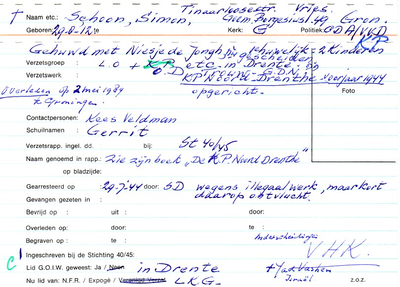 Naam etc.: Schoon, Simon, Gron.
Geboren 29-8-12 te Kerk: G Politiek: CDA/VVD
Gehuwd met Niesje de Jongh huwelijk = 2 Kinderen
Verzetsgroep : L.O + K.P. etc. in Drente.
Verzetswerk : K.P. Noord-Drenthe voorjaar 1944
Overleden op 2 mei 1989 opgericht.
te Groningen Foto
Contactpersonen: Kees Veldman
Schuilnaam : Gerrit
Verzetsrapp. ingel. dd. bij: St 40/45
Naam genoemd in rapp.: Zie zijn boek "De K.P. Noord Drenthe"
op bladzijde:
Gearresteerd op 29-7-44 door: SD wegens illegaal werk, maar kort
Gevangen gezeten in : daarop ontvlucht.
Bevrijd op : uit : door:
Overleden op: te : door:
Begraven op : te : Onderscheidingen
Ingeschreven bij de Stichting 40/45: VHK.
Lid G.O.I.W. geweest: Ja / Neen in Drente + Yad Vashem
Nu lid van: N.F.R. / Expogé / L.K.G. Israël z.o.z.